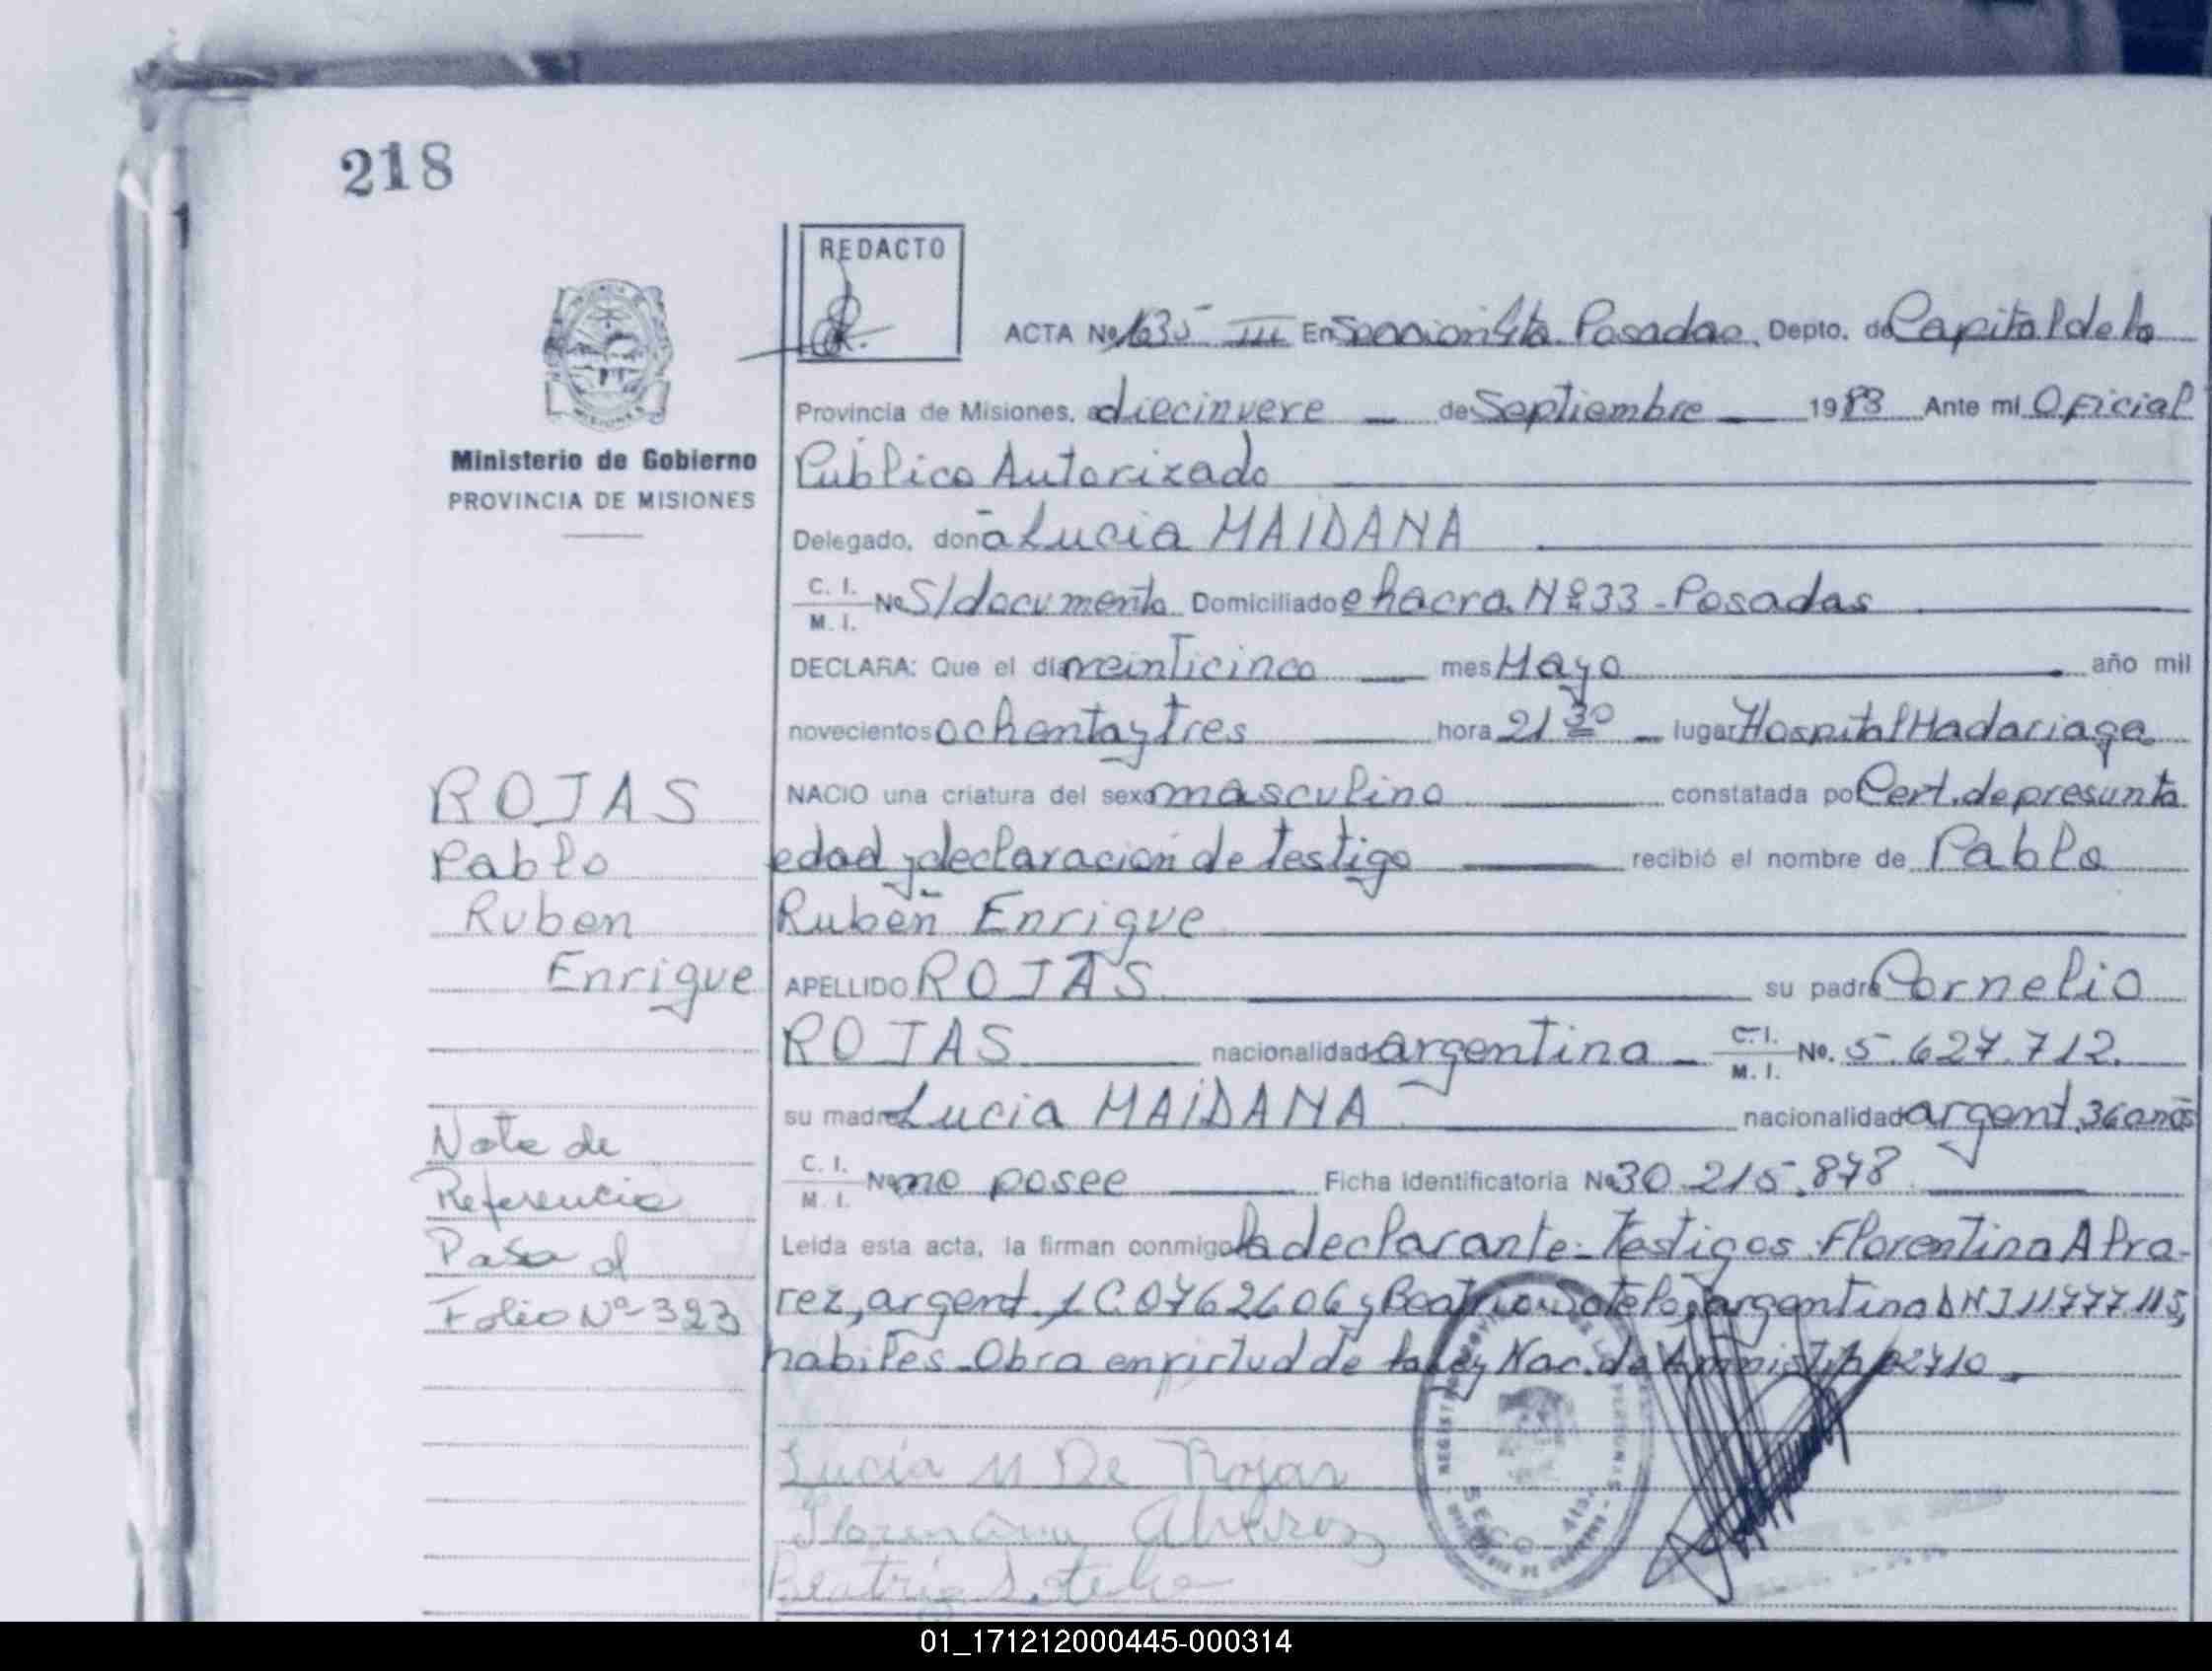 218
REDACTO
ACTA No 1635 III En Sección 4ta Posadas, Depto. de Capital de la
Provincia de Misiones, a diecinueve de Septiembre 1983 Ante mí Oficial
Ministerio de Gobierno
PROVINCIA DE MISIONES
Público Autorizado
Delegado, doña Lucia MAIDANA
C. I.
M. I.
No S/documento Domiciliado chacra Nº 33 - Posadas
DECLARA: Que el día veinticinco mes Mayo año mil
novecientos ochenta y tres hora 21 30 lugar Hospital Madariaga
NACIO una criatura del sexo masculino constatada por Cert. de presunta
edad y declaración de testigo recibió el nombre de Pablo
Rubén Enrique
APELLIDO ROJAS su padre Cornelio
ROJAS nacionalidad argentina C. I.
M. I. No. 5.627.712.
su madre Lucia MAIDANA nacionalidad argent. 36 años
C. I.
M. I.
No no posee Ficha Identificatoria No 30.215.878
Leída esta acta, la firman conmigo la declarante - Testigos Florentina Alva-
rez, argent. LC 0762606 y Beatriz Sotelo, argentina DNI 11777.115,
habiles - Obra en virtud de la Ley Nac. de Amnistia 22410
ROJAS
Pablo
Ruben
Enrique
Nota de
Referencia
Pasa al
Folio Nº 323
Lucia M De Rojas
Florentina Alvarez
Beatriz Sotelo
SECC. 4ta.
01_171212000445-000314